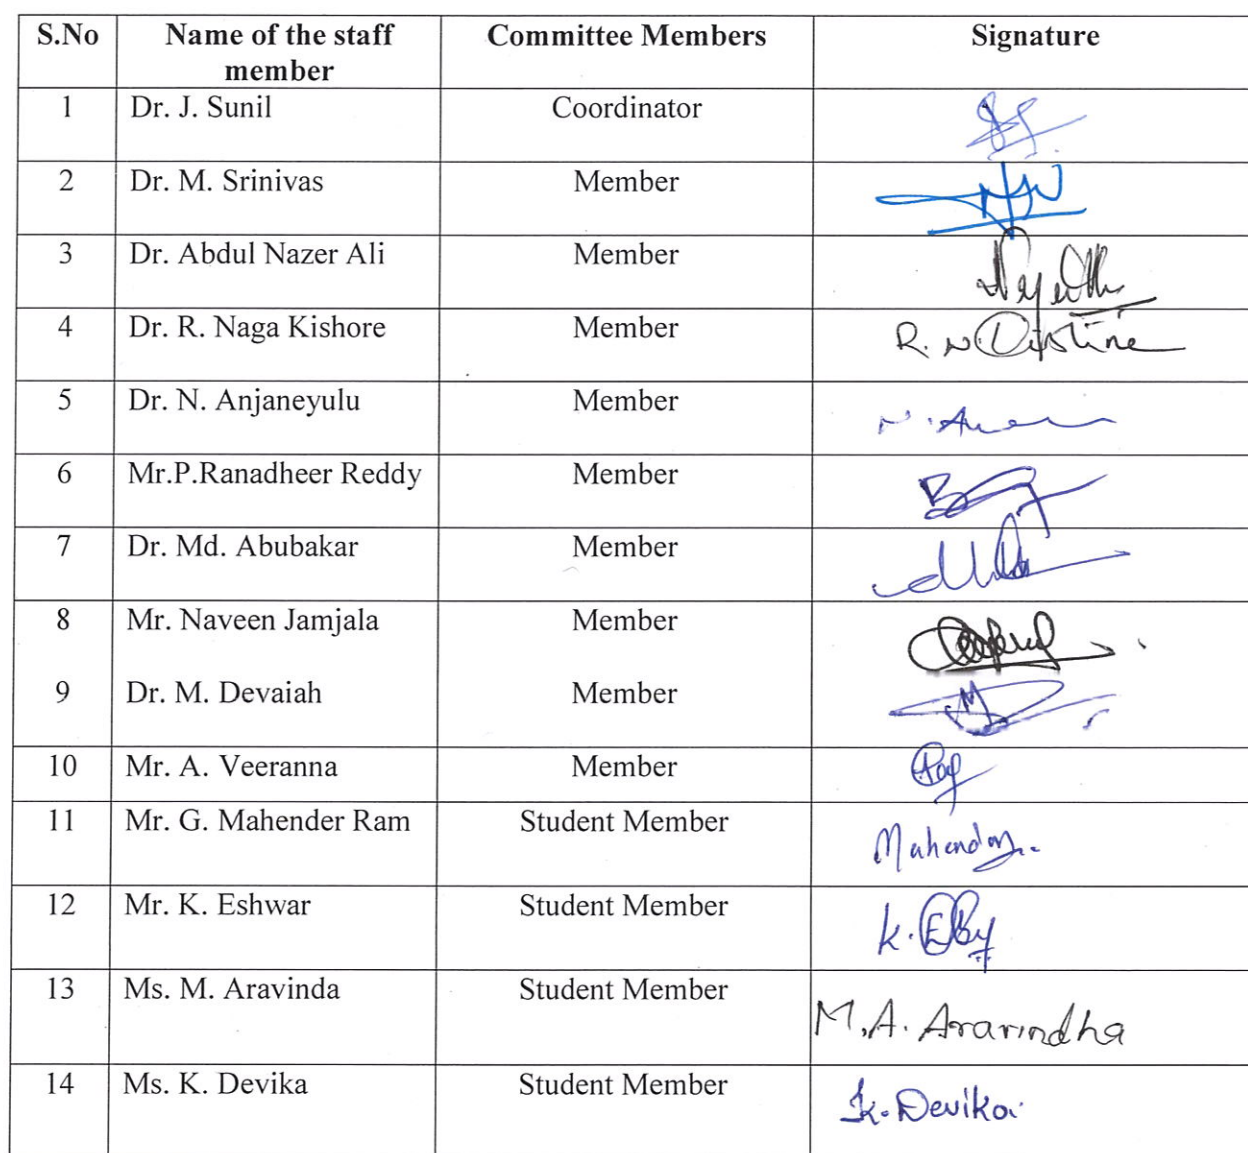 S.No Name of the staff member Committee Members Signature
1 Dr. J. Sunil Coordinator
2 Dr. M. Srinivas Member
3 Dr. Abdul Nazer Ali Member
4 Dr. R. Naga Kishore Member R. N
5 Dr. N. Anjaneyulu Member
6 Mr.P.Ranadheer Reddy Member
7 Dr. Md. Abubakar Member
8 Mr. Naveen Jamjala Member
9 Dr. M. Devaiah Member
10 Mr. A. Veeranna Member
11 Mr. G. Mahender Ram Student Member
12 Mr. K. Eshwar Student Member
13 Ms. M. Aravinda Student Member M.A. Aravindha
14 Ms. K. Devika Student Member K. Devika